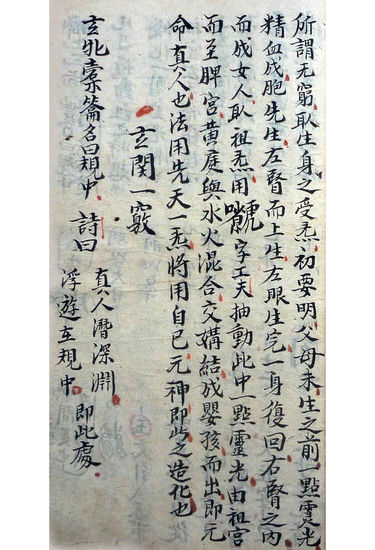 所謂无窮取生身之受炁初要明父母未生之前一點灵光
精血成胞先生左腎而上生左眼生完一身復回右腎之內
而成女人取祖炁用嘴虩字工夫抽動此中一點靈光由祖宫
而至脾宫黄庭與水火混合交媾結成嬰孩而出即元
命真人也法用先天一炁將用自己元神即此之造化也
玄関一竅
玄牝橐籥名曰規中 詩曰 真人潛深淵
浮遊在規中 即此處